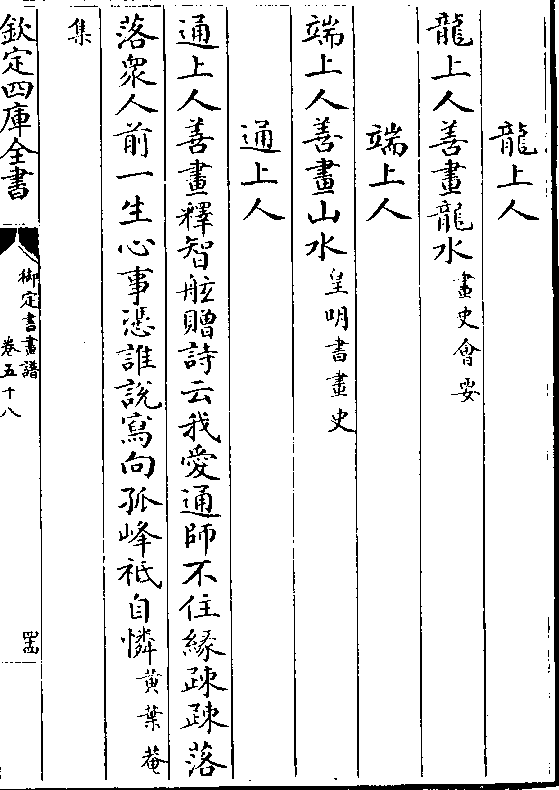 龍上人
龍上人善畫龍水畫史會要
端上人
端上人善畫山水皇明書畫史
通上人
通上人善畫釋智舷贈詩云我愛通師不住緣疎疎落
落衆人前一生心事憑誰說寫向孤峰祗自憐黄葉菴
集
欽定四庫全書
御定書畫譜
卷五十八